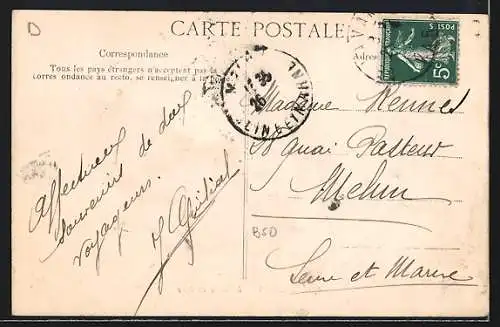 D
CARTE POSTALE
Correspondance
Tous les pays étrangers n'acceptent pas la
corres ondance au recto, se renseigner à la
Adres
POSTES
5c
MELUN
SEINE ET MARNE
Affectueux
souvenirs de deux
voyageurs.
Madame Hennes
28 quai Pasteur
Melun
Seine et Marne
B5D